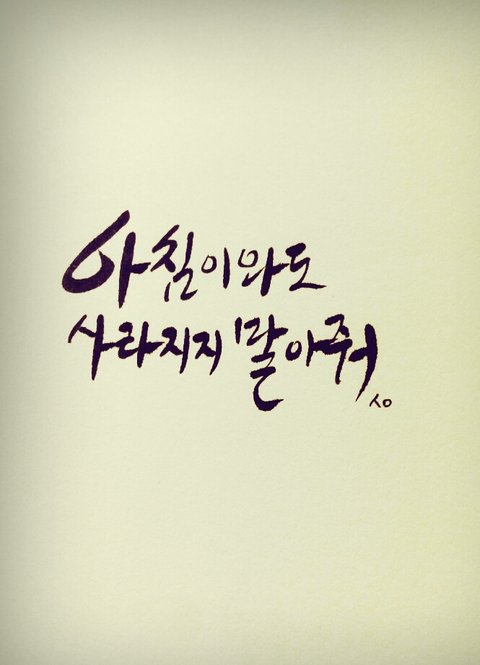 아침이와도
사라지지 말아줘
ㅅㅇ